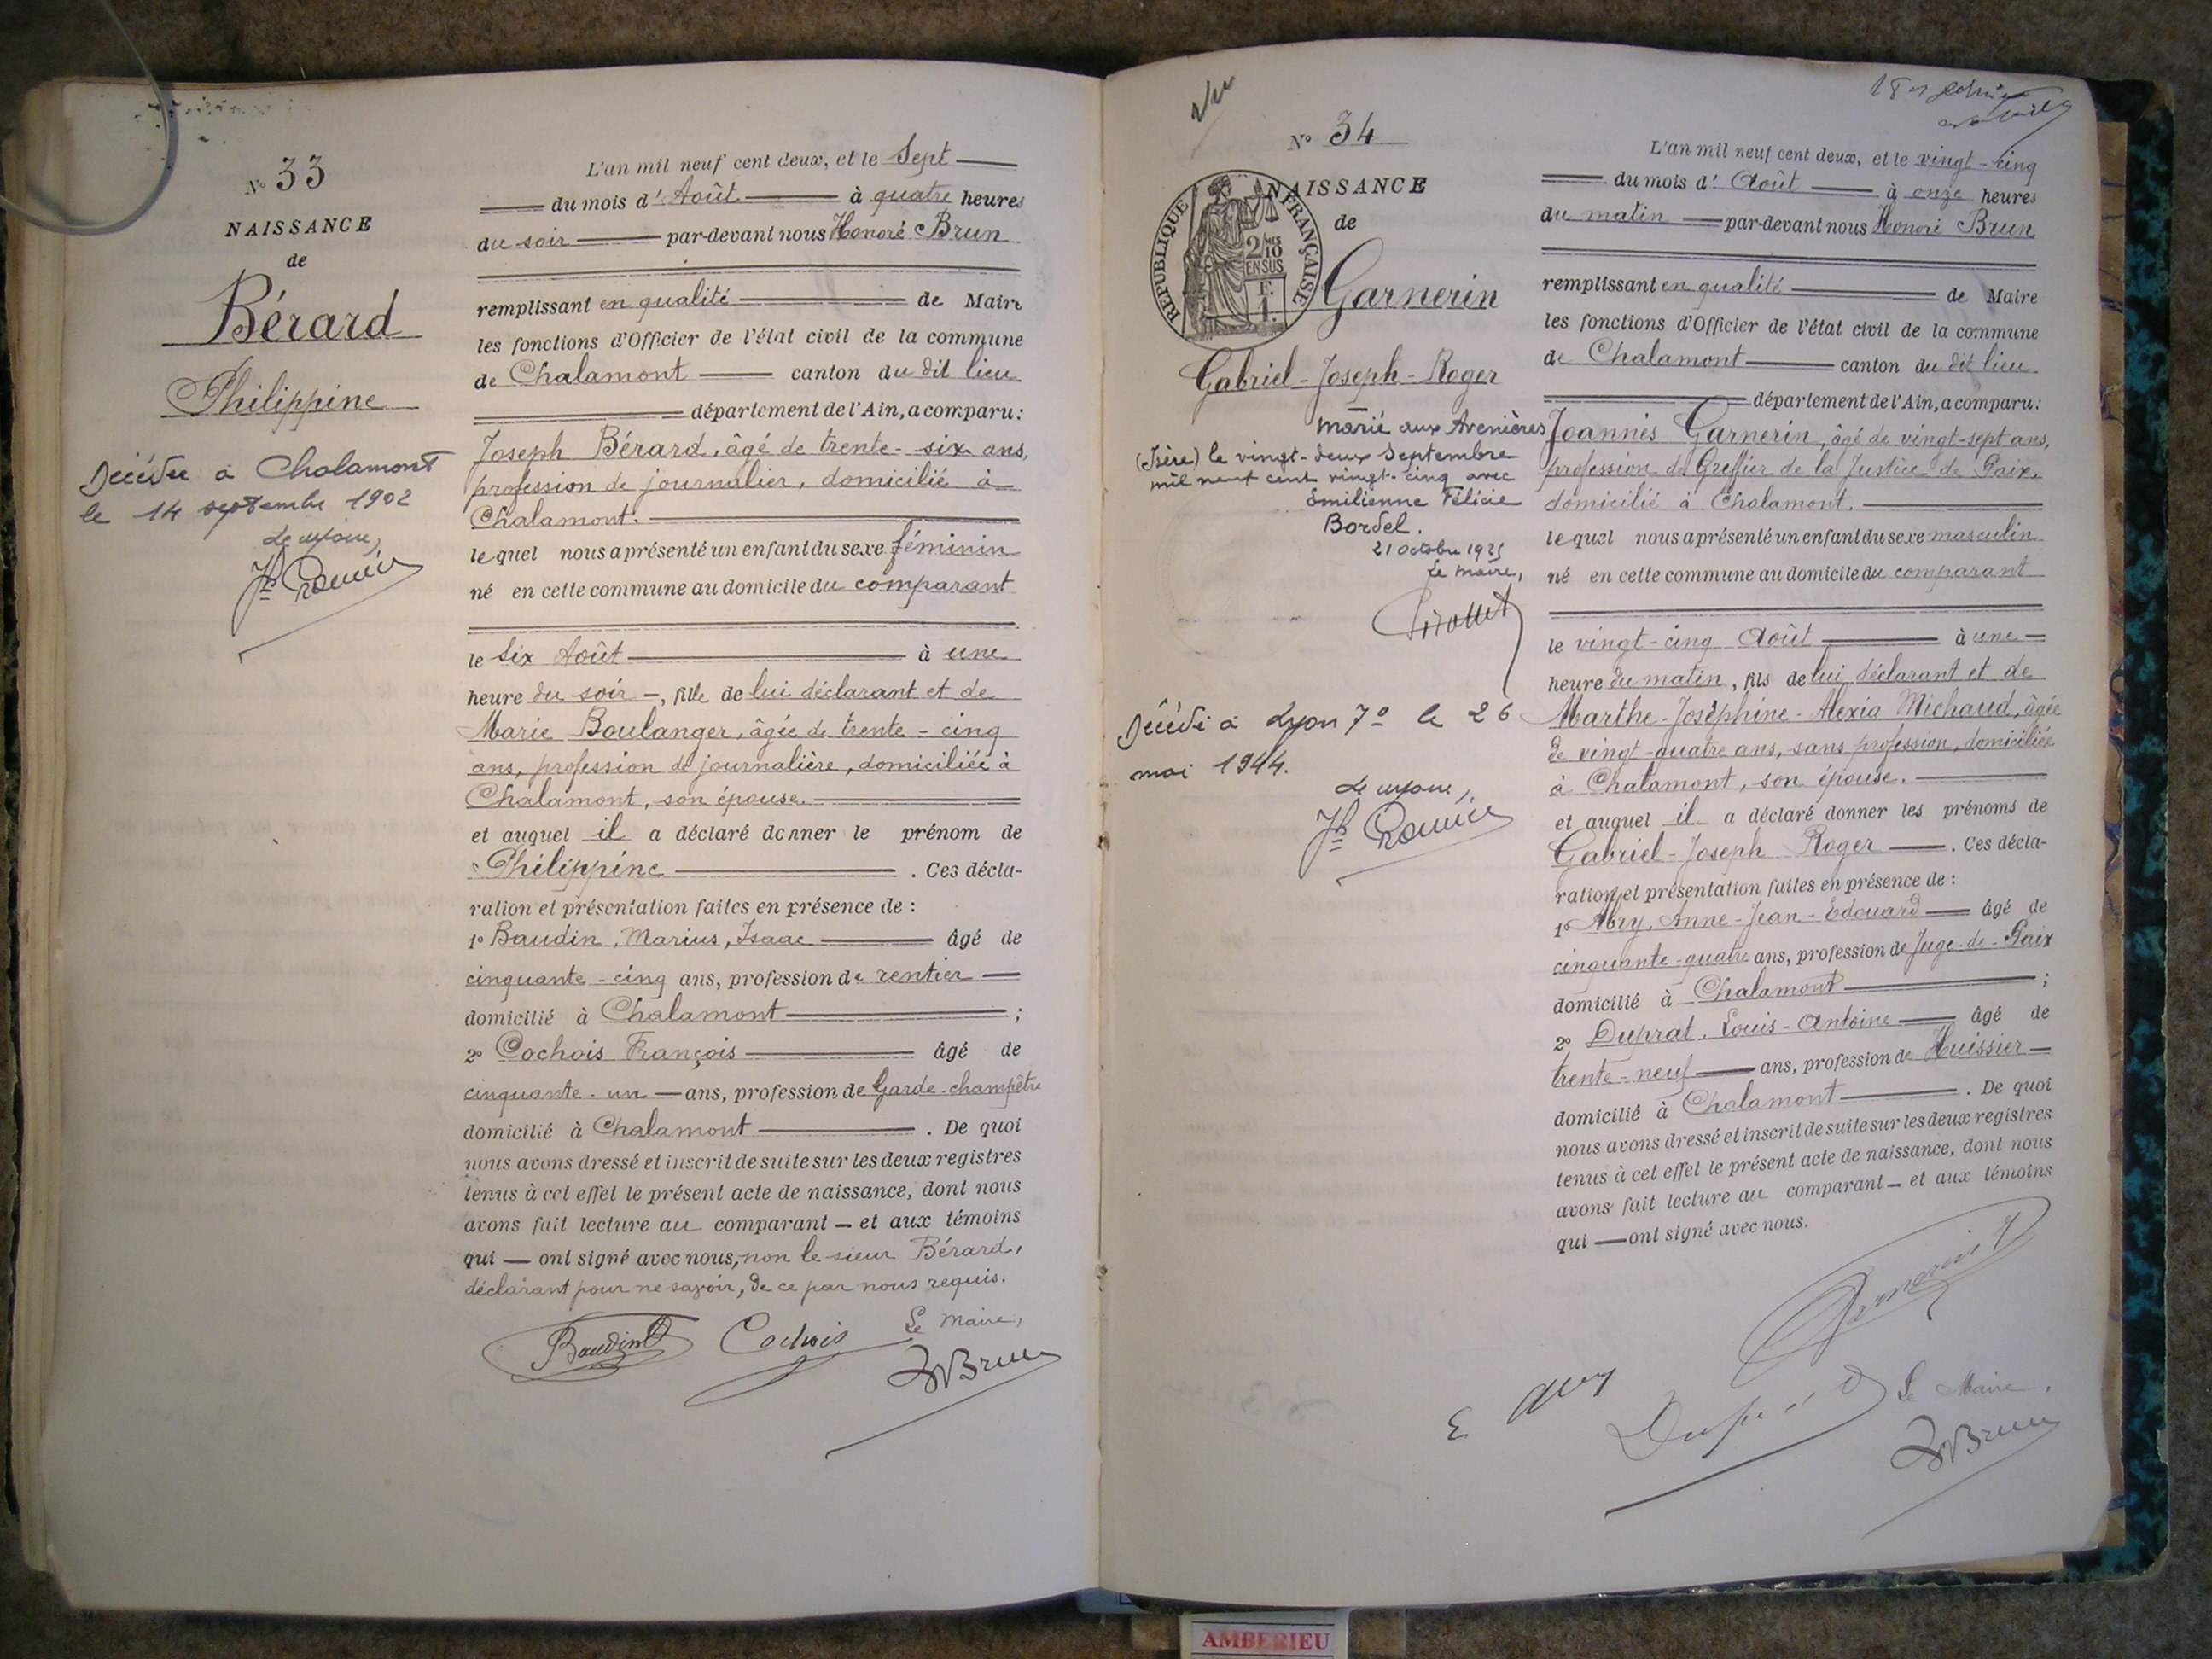 N° 33
NAISSANCE
de
Bérard
Philippine
Décédée à Chalamont
le 14 septembre 1902
Le maire,
L'an mil neuf cent deux, et le Sept
du mois d'Août à quatre heures
du soir par-devant nous Honoré Brun
remplissant en qualité de Maire
les fonctions d'Officier de l'état civil de la commune
de Chalamont canton du dit lieu
département de l'Ain, a comparu:
Joseph Bérard, âgé de trente-six ans,
profession de journalier, domicilié à
Chalamont.
lequel nous a présenté un enfant du sexe féminin
né en cette commune au domicile du comparant
le six Août à une
heure du soir -, fille de lui déclarant et de
Marie Boulanger, âgée de trente-cinq
ans, profession de journalière, domiciliée à
Chalamont, son épouse.
et auquel il a déclaré donner le prénom de
Philippine . Ces décla-
ration et présentation faites en présence de :
1° Baudin, Marius, Isaac âgé de
cinquante-cinq ans, profession de rentier
domicilié à Chalamont ;
2° Cochois François âgé de
cinquante-un ans, profession de Garde-champêtre
domicilié à Chalamont . De quoi
nous avons dressé et inscrit de suite sur les deux registres
tenus à cet effet le présent acte de naissance, dont nous
avons fait lecture au comparant — et aux témoins
qui — ont signé avec nous, non le sieur Bérard,
déclarant pour ne savoir, de ce par nous requis.
Baudin Cochois Le Maire,
HBrun
Vu
N° 34
NAISSANCE
de
REPUBLIQUE FRANÇAISE
2/10
EN SUS
F.
1.
Garnerin
Gabriel-Joseph-Roger
Marié aux Avenières
(Isère) le vingt-deux Septembre
mil neuf cent vingt-cinq avec
Emilienne Félicie
Bordel.
21 octobre 1925
Le maire,
Décédé à Lyon 7e le 26
mai 1944.
Le maire,
L'an mil neuf cent deux, et le vingt-cinq
du mois d'Août à onze heures
du matin par-devant nous Honoré Brun
remplissant en qualité de Maire
les fonctions d'Officier de l'état civil de la commune
de Chalamont canton du dit lieu
département de l'Ain, a comparu:
Joannès Garnerin, âgé de vingt-sept ans,
profession de Greffier de la Justice de Paix,
domicilié à Chalamont.
lequel nous a présenté un enfant du sexe masculin
né en cette commune au domicile du comparant
le vingt-cinq Août à une
heure du matin, fils de lui déclarant et de
Marthe-Joséphine-Alexia Michaud, âgée
de vingt-quatre ans, sans profession, domiciliée
à Chalamont, son épouse.
et auquel il a déclaré donner les prénoms de
Gabriel-Joseph Roger . Ces décla-
ration et présentation faites en présence de :
1° Abry, Anne-Jean-Edouard âgé de
cinquante-quatre ans, profession de Juge-de-Paix
domicilié à Chalamont ;
2° Duprat, Louis-Antoine âgé de
trente-neuf ans, profession de Huissier
domicilié à Chalamont . De quoi
nous avons dressé et inscrit de suite sur les deux registres
tenus à cet effet le présent acte de naissance, dont nous
avons fait lecture au comparant — et aux témoins
qui — ont signé avec nous.
Garnerin
Duprat Le Maire,
HBrun
AMBERIEU